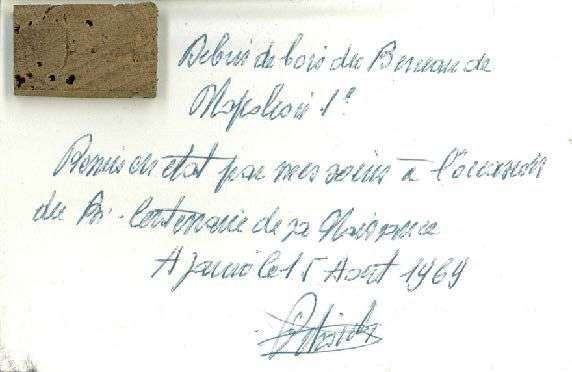 Debris de bois du Berceau de
Napoléon 1er
Remis en état par mes soins à l'occasion
du Bi-Centenaire de sa Naissance
Ajaccio le 15 Août 1969